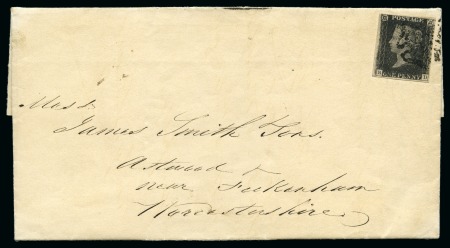 POSTAGE
ONE PENNY
Mess.
James Smith Sons.
Astwood
near Feckenham
Worcestershire